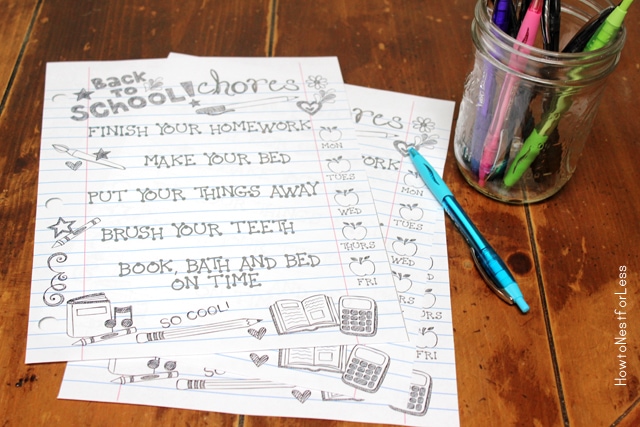 BACK TO SCHOOL! chores
FINISH YOUR HOMEWORK
MON
MAKE YOUR BED
TUES
PUT YOUR THINGS AWAY
WED
BRUSH YOUR TEETH
THURS
BOOK, BATH AND BED
ON TIME
FRI
SO COOL!
ores
ORK
MON
TUES
WED
URS
FRI
SO
HowtoNestForLess